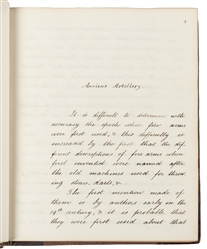 Ancient Artillery.
It is difficult to determine with
accuracy the epoch when fire arms
were first used, & this difficulty is
increased by the fact that the dif-
ferent descriptions of fire arms when
first invented were named after
the old machines used for throw
ing stones, darts, &.
The first mention made of
them is by authors early in the
14th century, & it is probable that
they were first used about that